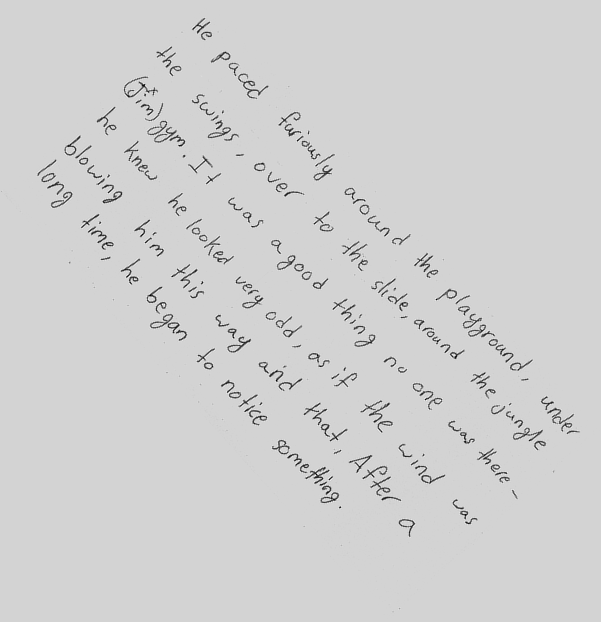 He paced furiously around the playground, under
the swings, over to the slide, around the jungle
(Jim) gym. It was a good thing no one was there-
he knew he looked very odd, as if the wind was
blowing him this way and that. After a
long time, he began to notice something.